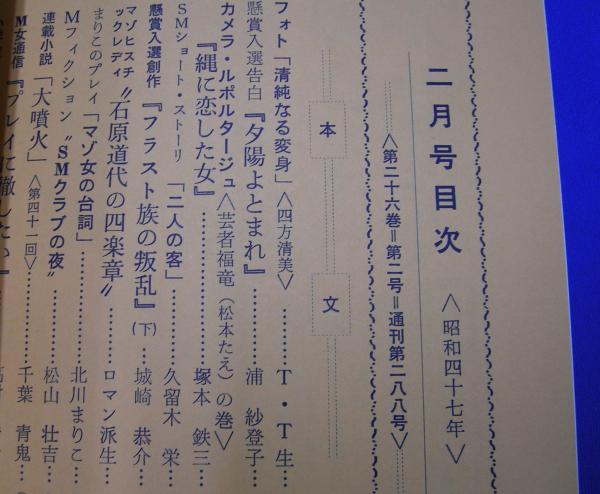 二月号目次 〈昭和四十七年〉
〈第二十六巻=第二号=通刊第二八八号〉
本文
フォト「清純なる変身」〈四方清美〉…………T・T生…
懸賞入選告白『夕陽よとまれ』…………浦 紗登子…
カメラ・ルポルタージュ〈芸者福竜(松本たえ)の巻〉
『縄に恋した女』…………塚本 鉄三…
SMショート・ストーリ 「二人の客」…………久留木 栄…
懸賞入選創作『フラスト族の叛乱』(下)…城崎 恭介…
マゾヒスチックレディ〝石原道代の四楽章〟…………ロマン派生…
まりこのプレイ「マゾ女の台詞」…………北川まりこ…
Mフィクション〝SMクラブの夜〟…………松山 壮吉…
連載小説「大噴火」〈第四十一回〉…………千葉 青鬼…
M女通信『プレイに徹したい』